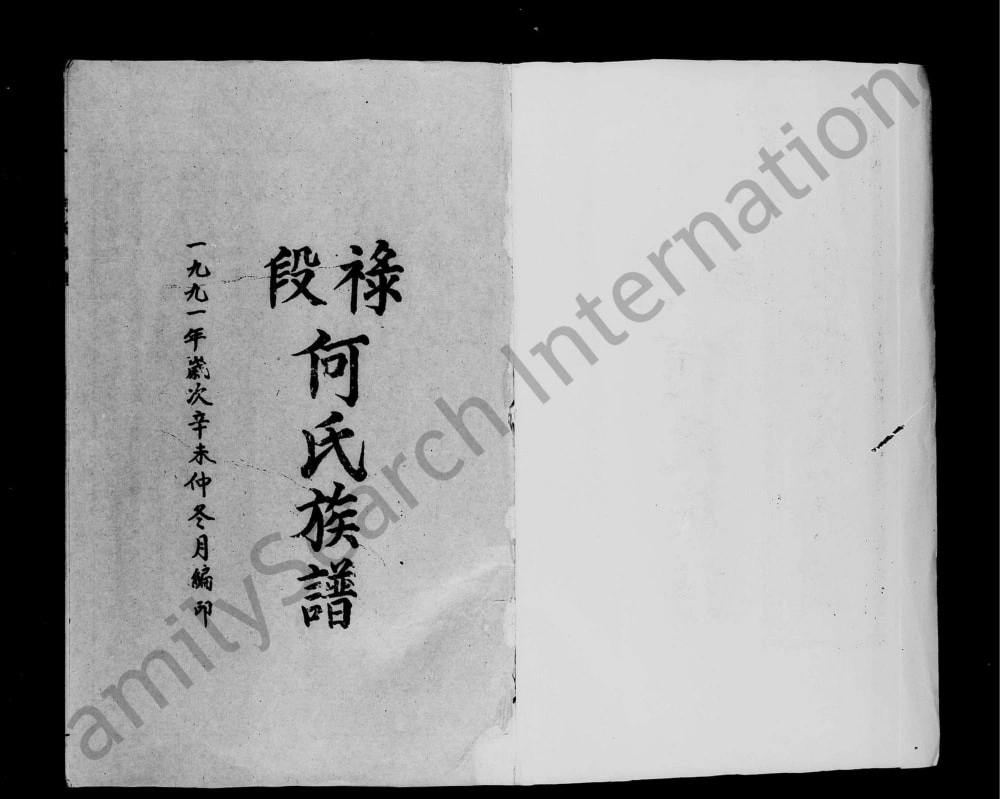 祿段
何氏族譜
一九九一年歲次辛未仲冬月編印
amilySearch International